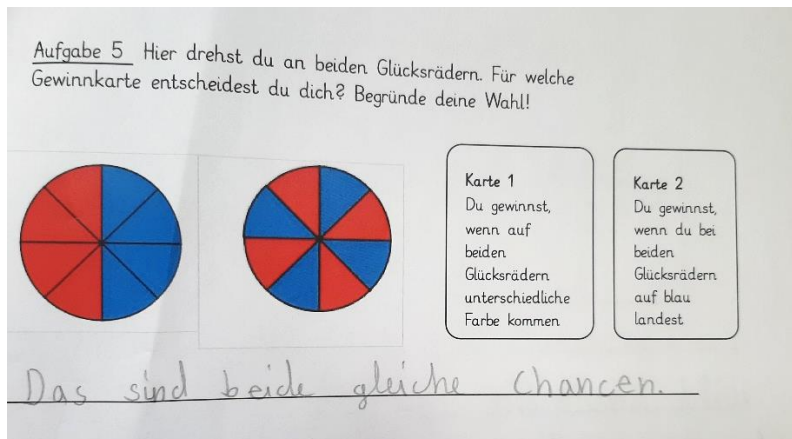 Aufgabe 5 Hier drehst du an beiden Glücksrädern. Für welche
Gewinnkarte entscheidest du dich? Begründe deine Wahl!
Karte 1
Du gewinnst,
wenn auf
beiden
Glücksrädern
unterschiedliche
Farbe kommen
Karte 2
Du gewinnst,
wenn du bei
beiden
Glücksrädern
auf blau
landest
Das sind beide gleiche Chancen.